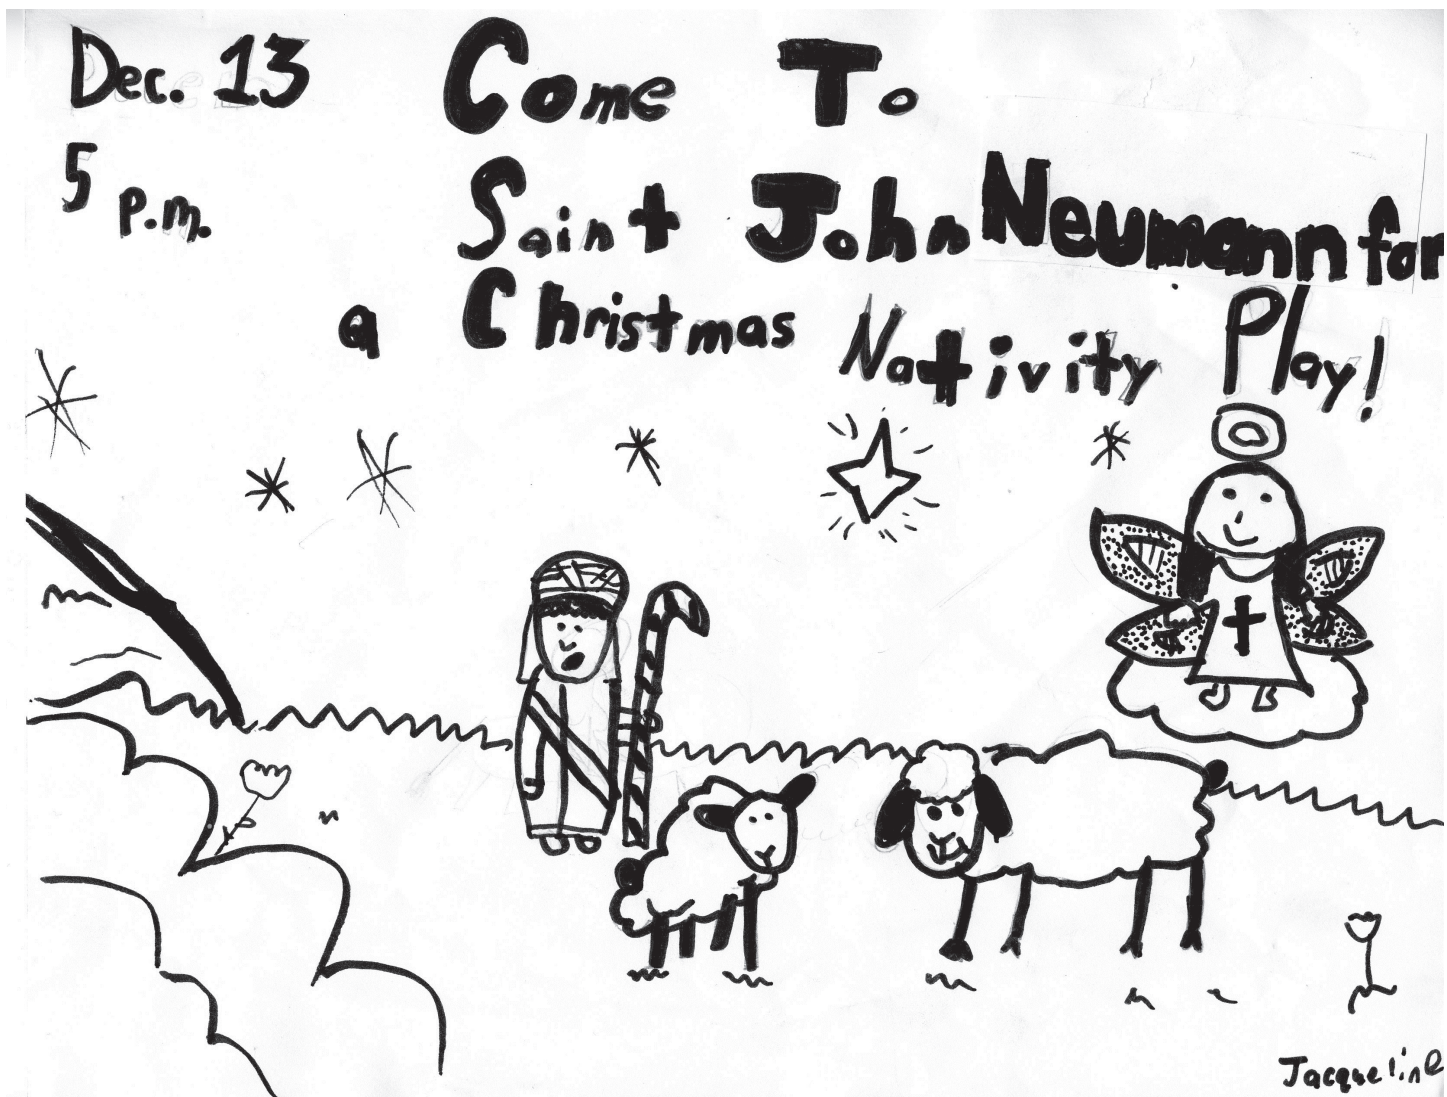 Dec. 13
5 p.m.
Come To
Saint John Neumann for
a Christmas Nativity Play!
Jacqueline